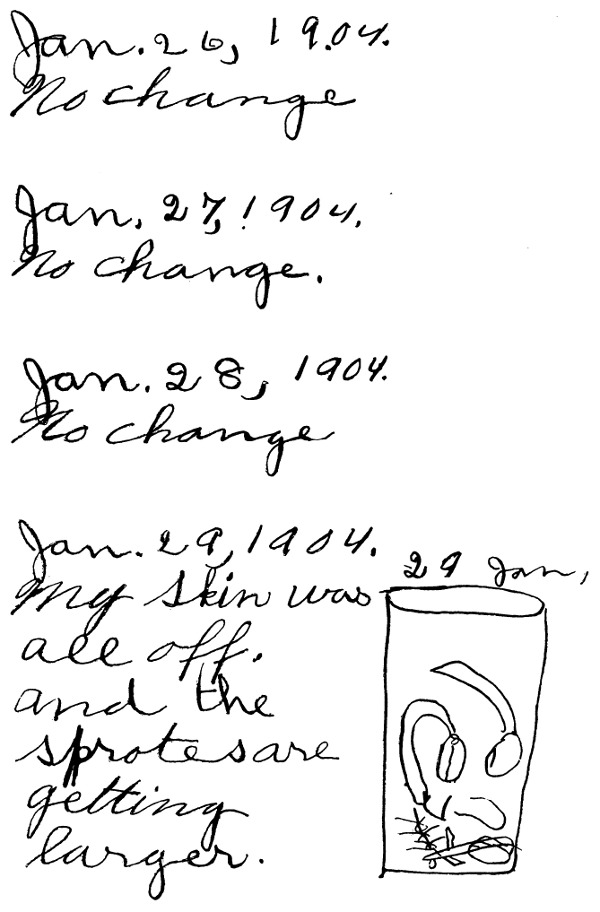 Jan. 26, 1904.
No change
Jan. 27, 1904.
No change.
Jan. 28, 1904.
No change
Jan. 29, 1904.
My skin was
all off.
and the
sprotes are
getting
larger.
29 Jan,